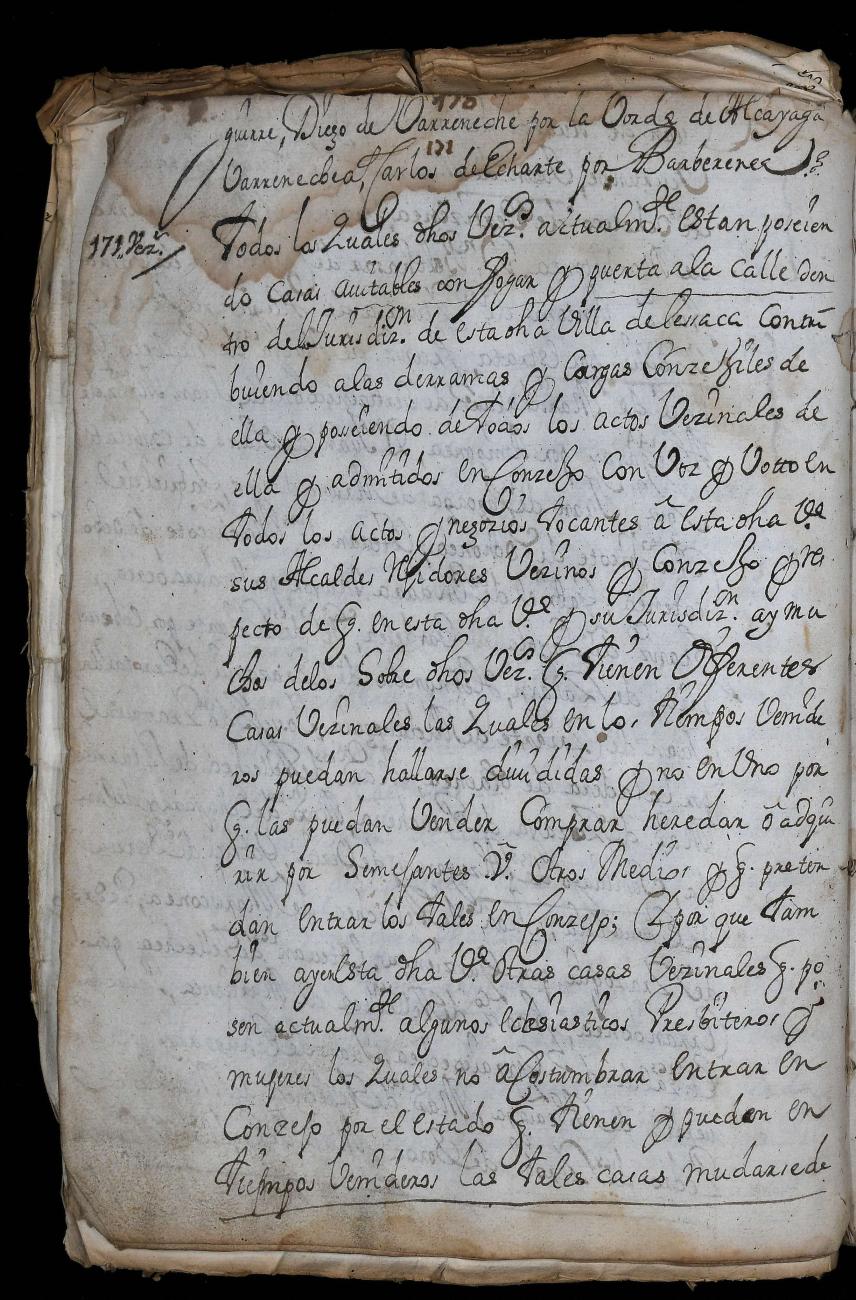 170
guirre, Diego de Varreneche por la Vorda de Alcayaga
171
Varrenechea, Carlos de Echarte por Barberenea
171 Vezs.
Todos los Quales dhos Vez.os actualm.te estan poseien
do casas avitables con fogar y puerta ala calle den
tro del Jurisdiz.on de esta dha Villa de lesaca Contri
buiendo alas derramas y Cargas Conzegiles de
ella y poseiendo de todos los actos Vezinales de
ella y admitidos en Conzejo con Voz y Votto en
todos los actos y negozios tocantes â esta dha V.a
sus Alcaldes Rejidores Vezinos y Conzejo y res
pecto de q. en esta dha V.a y su Jurisdiz.on ay mu
chos delos Sobre dhos Vez.os q. tienen Diferentes
Casas Vezinales las Quales en los tiempos Venide
ros puedan hallarse diuididas y no en Uno por
q. las puedan Vender Comprar heredar ô adqui
rir por Semejantes Û. Otros Medios y q. preten
dan entrar los tales en Conzejo; Y por que tam
bien ay en esta dha V.a Otras casas Vezinales q. po
seen actualm.te algunos eclesiasticos Presbiteros y
mujeres los Quales no âCostumbran entrar en
Conzejo por el estado q. tienen y pueden en
tiempos Venideros las tales casas mudarse de